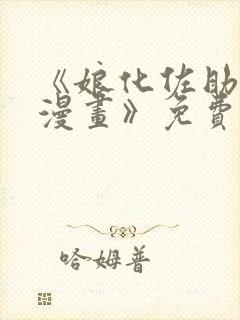 《娘化佐助
漫畫》免費
哈姆普